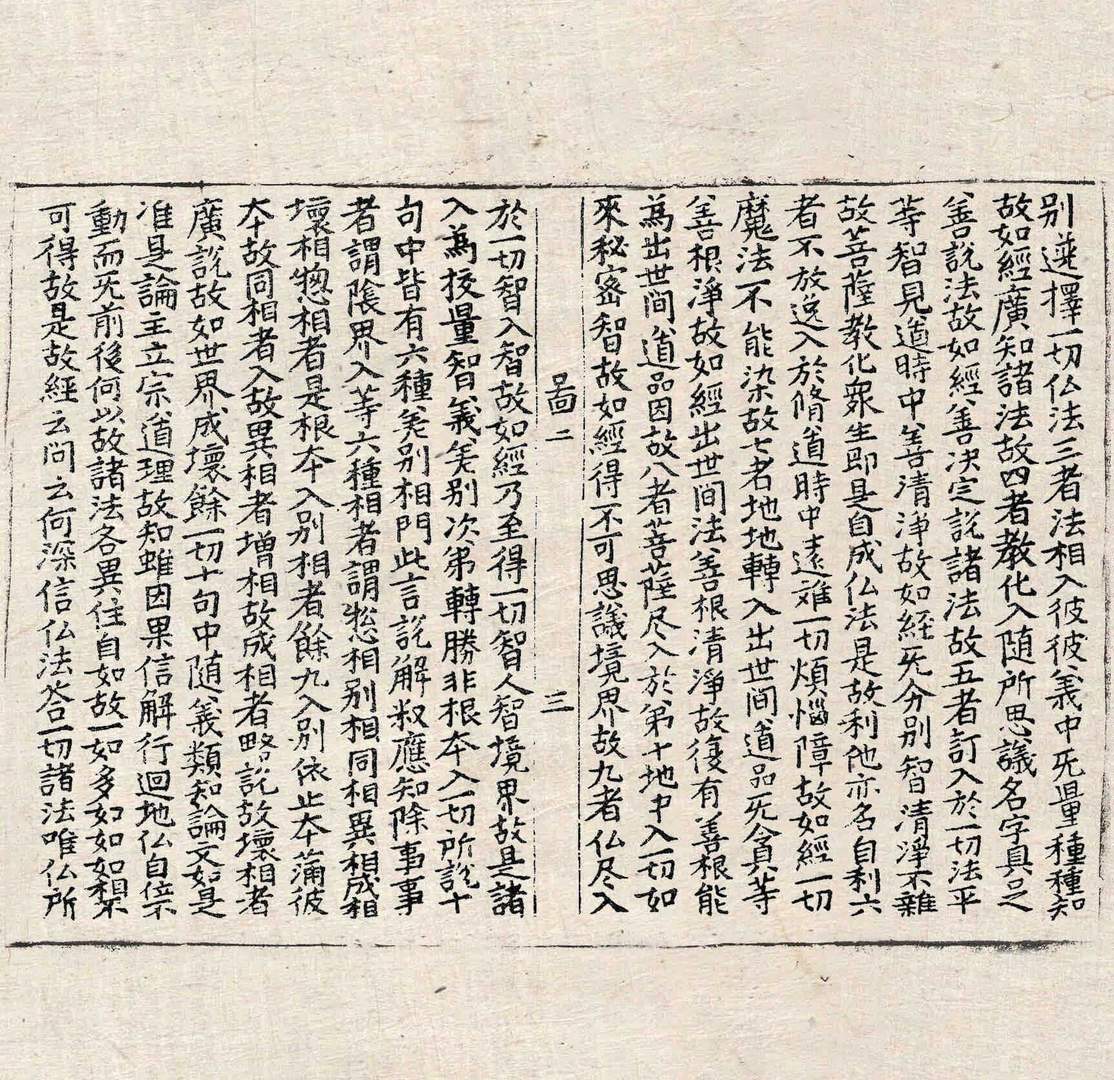 別選擇一切仏法三者法相入彼彼義中旡量種種知
故如經廣知諸法故四者教化入随所思議名字具足
善說法故如經善決定說諸法故五者訂入於一切法平
等智見道時中善清浄故如經旡分別智清淨不雜
故菩薩教化衆生即是自成仏法是故利他亦名自利六
者不放逸入於脩道時中遠離一切煩惱障故如經一切
魔法不能染故七者地地轉入出世間道品旡貪等
善根淨故如經出世間法善根清淨故復有善根能
為出世間道品因故八者菩薩尽入於第十地中入一切如
來秘密智故如經得不可思議境界故九者仏尽入
啚二 三
於一切智入智故如經乃至得一切智人智境界故是諸
入為挍量智義差别次弟轉勝非根夲入一切所說十
句中皆有六種差别相門此言說解釈應知除事事
者謂陰界入等六種相者謂惣相别相同相異相成相
壞相惣相者是根夲入别相者餘九入别依止夲满彼
夲故同相者入故異相者增相故成相者略說故壞相者
廣說故如世界成壞餘一切十句中随義類知論文如是
准是論主立宗道理故知雖因果信解行迴地仏自位不
動而旡前後何以故諸法各異住自如故一如多如如如相
可得故是故經云問云何深信仏法答一切諸法唯仏所